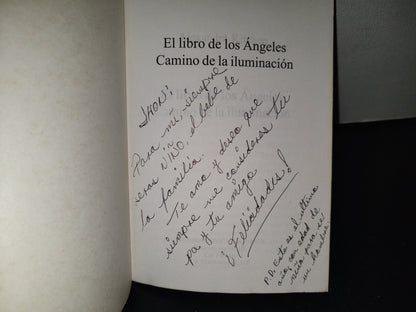 El libro de los Ángeles
Camino de la iluminación
JHON:
Para mi, siempre
seras "NINO, el bebe de
la familia.
Te amo y deseo que
siempre me consideres tu
pa y tu amigo
¡Felicidades!
P.D. Este es el ultimo
año, con edad de
niño para ser
un hombre.